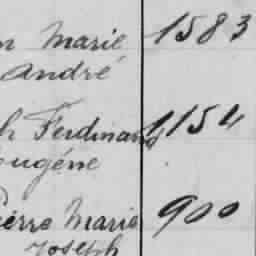 n Marie 1583
André
h Ferdinand 1154
Eugéne
Pierre Marie 900
Joseph